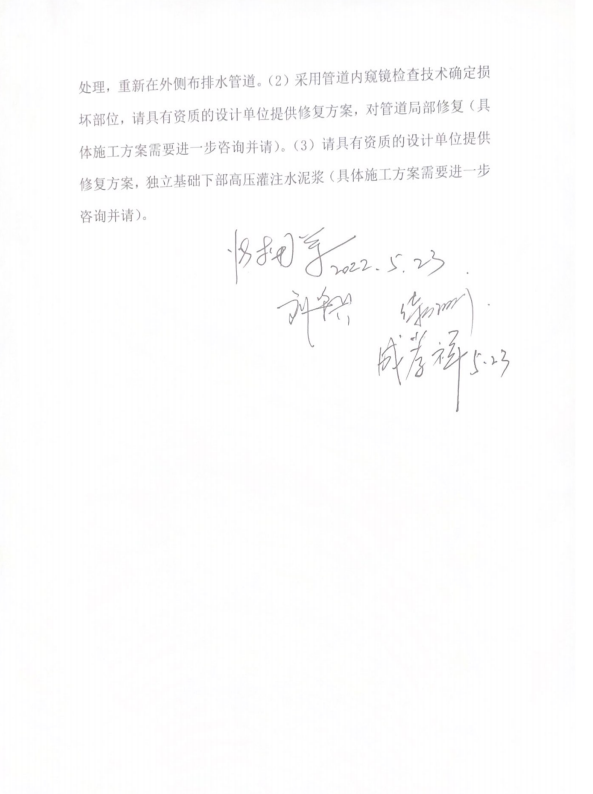 处理，重新在外侧布排水管道。（2）采用管道内窥镜检查技术确定损
坏部位，请具有资质的设计单位提供修复方案，对管道局部修复（具
体施工方案需要进一步咨询并请）。（3）请具有资质的设计单位提供
修复方案，独立基础下部高压灌注水泥浆（具体施工方案需要进一步
咨询并请）。
2022.5.23
成孝祥 5.23